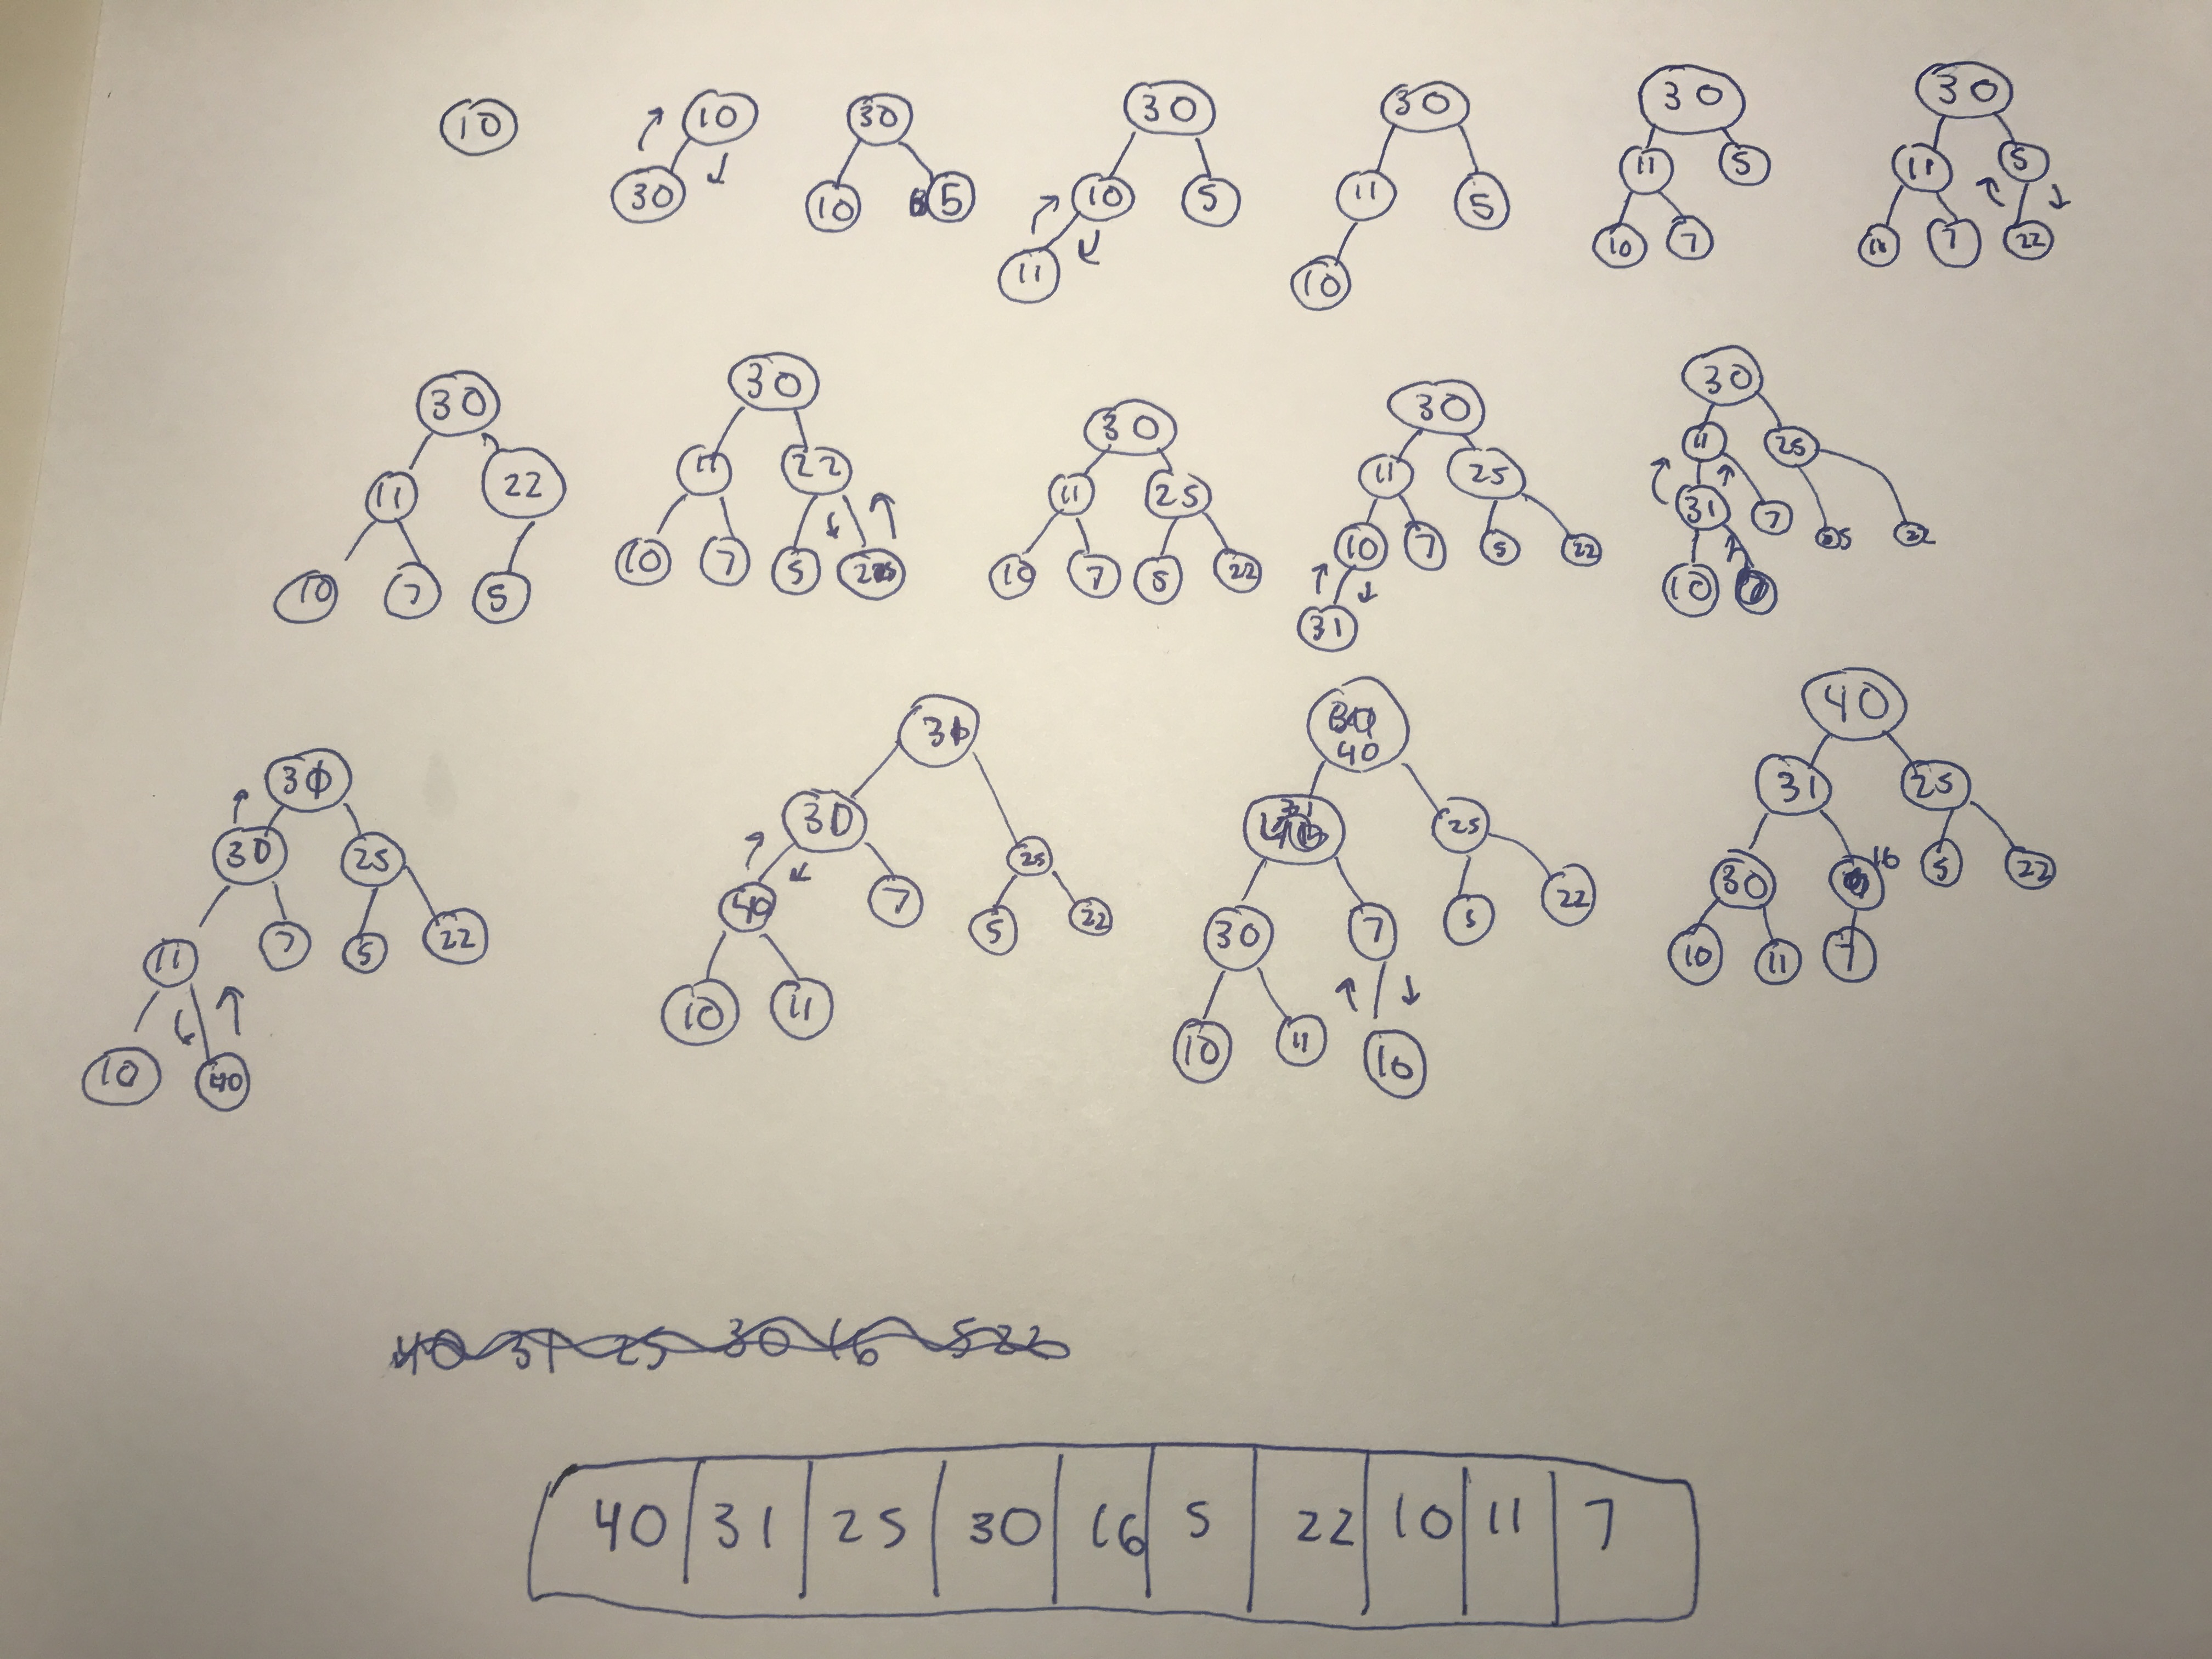 10
10 30
30 10 5
30 10 5 11
30 11 5 10
30 11 5 10 7
30 11 5 10 7 22
30 11 22 10 7 5
30 11 22 10 7 5
30 11 25 10 7 5 22
30 11 25 10 7 5 22 31
30 11 25 31 7 5 22 10
30 25 11 7 5 22 10 40
30 25 40 7 5 22 10 11
40 25 30 7 5 22 10 11 16
40 31 25 30 16 5 22 10 11 7
40 31 25 30 16 5 22
40 31 25 30 16 5 22 10 11 7